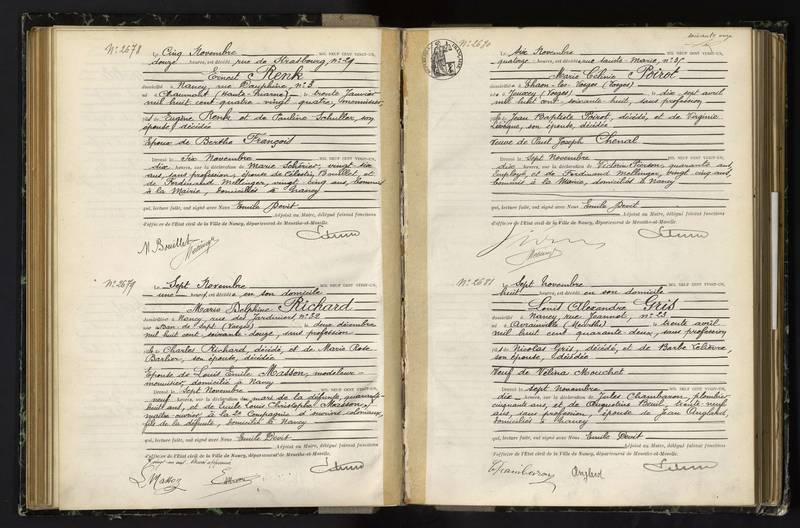 N° 2678
Le Cinq Novembre MIL NEUF CENT VINGT-UN,
douze heures, est décédé, rue de Strasbourg, n° 29
Ernest Renk
domicilié à Nancy, rue Dauphine, n° 3
né à Chaumont (Haute-Marne), le trente Janvier
mil huit cent quatre vingt quatre, menuisier
fils de Eugène Renk et de Pauline Schuller, son
épouse, décédés
Epoux de Berthe François
Dressé le Six Novembre MIL NEUF CENT VINGT-UN,
dix heures, sur la déclaration de Marie Schérier, vingt six
ans, sans profession, épouse de Célestin Bouillet et
de Ferdinand Mellinger, vingt cinq ans, Commis
à la Mairie, domiciliés à Nancy
qui, lecture faite, ont signé avec Nous Emile Devit
Adjoint au Maire, délégué faisant fonctions
d'officier de l'Etat civil de la Ville de Nancy, département de Meurthe-et-Moselle.
M. Bouillet
N° 2679
Le Sept Novembre MIL NEUF CENT VINGT-UN,
une heure, est décédée en son domicile
Marie Delphine Richard
domiciliée à Nancy, rue des Jardiniers, n° 22
née à Ban-de-Sapt (Vosges) le deux décembre
mil huit cent soixante-douze, sans profession
fille de Charles Richard, décédé, et de Marie Rose
Barlier, son épouse, décédée
Epouse de Louis Emile Masson, modeleur
mounier, domicilié à Nancy
Dressé le Sept Novembre MIL NEUF CENT VINGT-UN,
neuf heures, sur la déclaration du mari de la défunte, quarante
huit ans, et de Louis Christophe Masson,
maître ouvrier à la Compagnie d'ouvriers coloniaux,
fils de la défunte, domicilié à Nancy
qui, lecture faite, ont signé avec Nous Emile Devit
Adjoint au Maire, délégué faisant fonctions
d'officier de l'Etat civil de la Ville de Nancy, département de Meurthe-et-Moselle.
L. Masson
soixante onze
N° 2680
Le Six Novembre MIL NEUF CENT VINGT-UN,
quatorze heures, est décédée, rue Sainte-Marie, n° 35
Marie Célinie Poirot
domiciliée à Thaon-les-Vosges (Vosges)
née à Jeuxey (Vosges) le dix sept avril
mil huit cent soixante-huit, sans profession
fille de Jean Baptiste Poirot, décédé, et de Virginie
Lévêque, son épouse, décédée
Veuve de Paul Joseph Chenal
Dressé le Sept Novembre MIL NEUF CENT VINGT-UN,
dix heures, sur la déclaration de Victorin Pierson, quarante ans,
Employé, et de Ferdinand Mellinger, vingt cinq ans,
Commis à la Mairie, domiciliés à Nancy
qui, lecture faite, ont signé avec Nous Emile Devit
Adjoint au Maire, délégué faisant fonctions
d'officier de l'Etat civil de la Ville de Nancy, département de Meurthe-et-Moselle.
N° 2681
Le Sept Novembre MIL NEUF CENT VINGT-UN,
huit heures, est décédé en son domicile
Louis Alexandre Gris
domicilié à Nancy, rue Jeannot, n° 23
né à Avrainville (Meurthe) le trente avril
mil huit cent quarante deux, sans profession
fils de Nicolas Gris, décédé, et de Barbe Lelièvre,
son épouse, décédée
Veuf de Velina Mouchet
Dressé le Sept Novembre MIL NEUF CENT VINGT-UN,
dix heures, sur la déclaration de Jules Chambaron, plombier
cinquante ans, et de Augustine Beul, trente neuf
ans, sans profession, épouse de Jean Anglard,
domiciliés à Nancy
qui, lecture faite, ont signé avec Nous Emile Devit
Adjoint au Maire, délégué faisant fonctions
d'officier de l'Etat civil de la Ville de Nancy, département de Meurthe-et-Moselle.
Chambaron Anglard